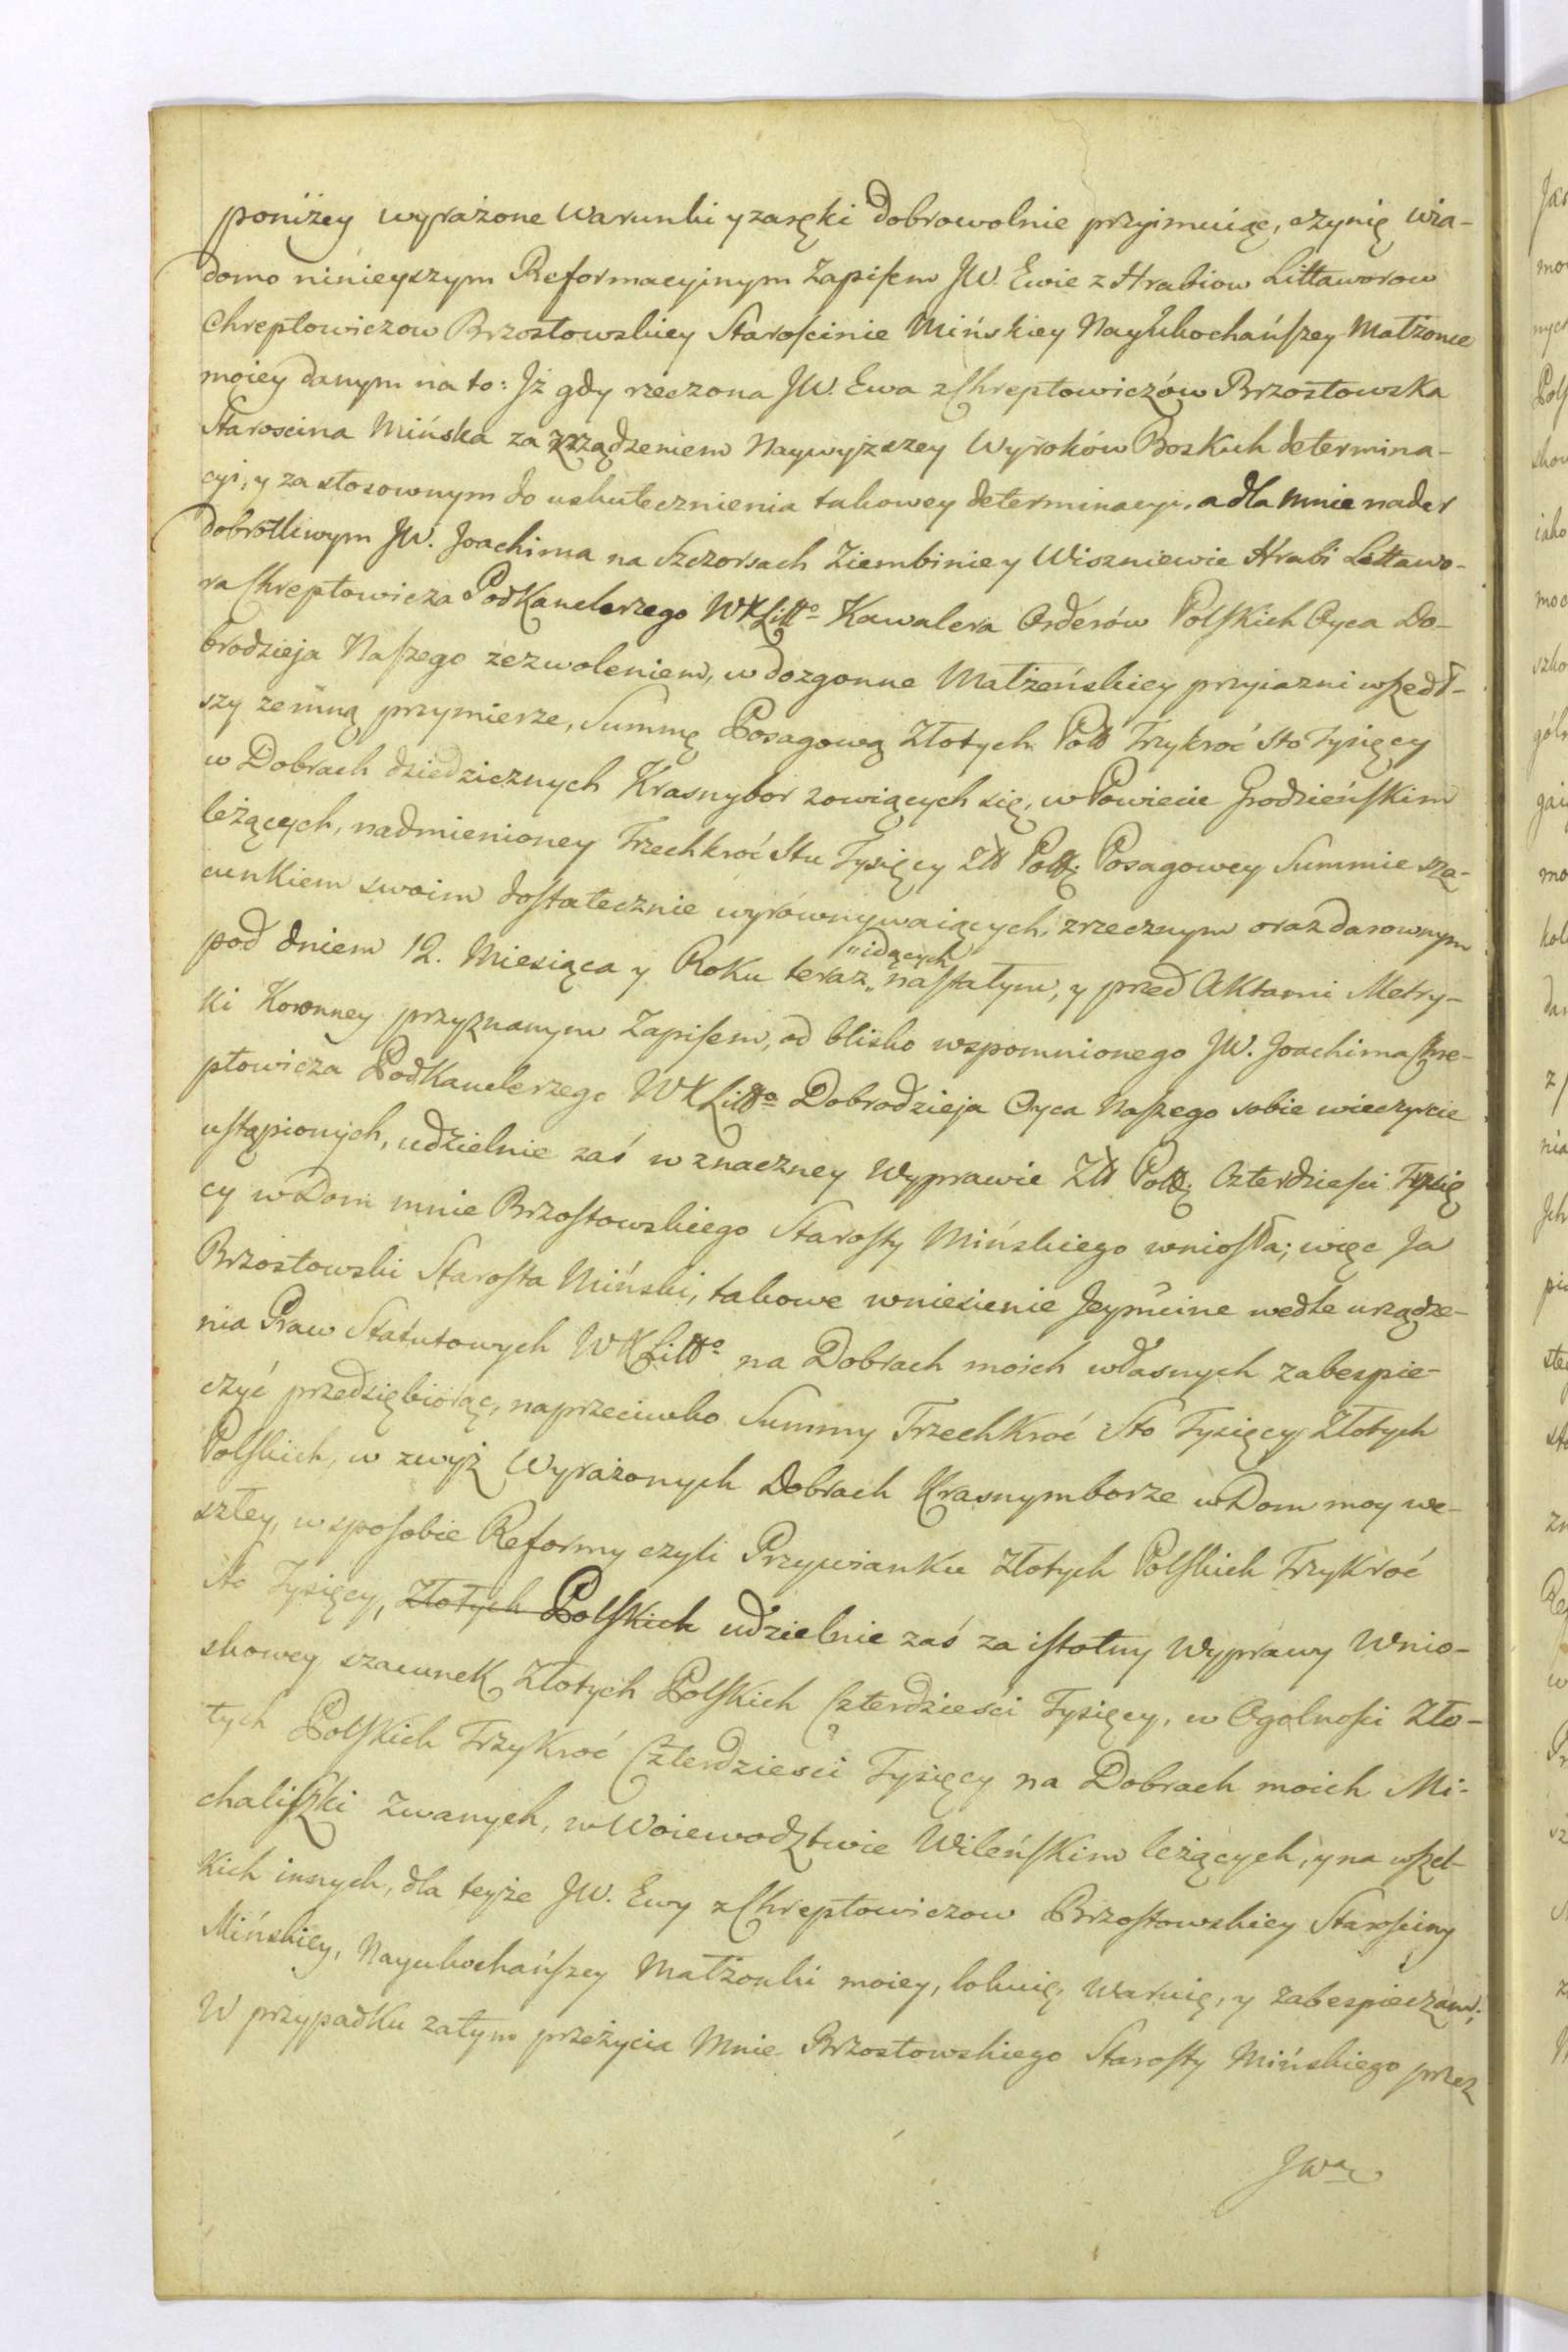 poniżey wyrażone Warunki y zaręki dobrowolnie przyimuiąc, czynię wia-
domo ninieyszym Reformacyjnym Zapisem JW. Ewie z Hrabiow Littaworow
Chreptowiczow Brzostowskiey Starościnie Mińskiey Nayukochańszey Małżonce
moiey danym na to: Jż gdy rzeczona JW. Ewa z Chreptowiczów Brzostowska
Starościna Mińska za zrządzeniem Naywyższey Wyroków Boskich determina-
cyi, y za stosownym do uskutecznienia takowey determinacyi, a dla mnie nader
dobrotliwym JW. Joachima na Szczorsach Ziembinie y Wiszniewie Hrabi Littawo-
ra Chreptowicza PodKanclerzego WXLittº Kawalera Orderów Polskich Oyca Do-
brodzieja Naszego zezwoleniem, w dozgonne Małżeńskiey przyiazni wszedł-
szy zemną przymierze, Summę Posagową Złotych Poll Trzykroć sto Tysięcy
w Dobrach dziedzicznych Krasnybor zowiących się, w Powiecie Grodzieńskim
leżących, nadmienioney Trzechkroć Stu Tysięcy Złł Polł: Posagowey Summie sza-
cunkiem swoim dostatecznie wyrównywaiących, zrzecznym oraz darownym
pod dniem 12. Miesiąca y Roku teraz „idących nastałym, y przed Aktami Metry-
ki Koronney przyznanym Zapisem, od blisko wspomnionego JW. Joachima Chre-
ptowicza PodKanclerzego WXLittº Dobrodzieja Oyca Naszego sobie wieczyście
ustąpionych, udzielnie zaś w znaczney Wyprawie Złł Poll: Czterdzieści Tysię
cy w Dom mnie Brzostowskiego Starosty Mińskiego wniosła; więc Ja
Brzostowski Starosta Miński, takowe wniesienie Jeymścine wedle urządze-
nia Praw Statutowych WXLittº na Dobrach moich własnych zabespie-
czyć przedsiębiorąc, naprzeciwko Summy Trzechkroć Sto Tysięcy Złotych
Polskich, w zwyż Wyrażonych Dobrach Krasnymborze w Dom moy we-
szłey, w sposobie Reformy czyli Przywianku Złotych Polskich Trzykroć
sto Tysięcy, Złotych Polskich udzielnie zaś za istotny Wyprawy Wnio-
skowey szacunek Złotych Polskich Czterdzieści Tysięcy, w Ogolności Zło-
tych Polskich Trzykroć Czterdzieści Tysięcy na Dobrach moich Mi-
chaliszki zwanych, w Woiewodztwie Wileńskim leżących, y na wszel-
kich innych, dla teyże JW. Ewy z Chreptowiczow Brzostowskiey Starościny
Mińskiey, Nayukochańszey Małżonki moiey, lokuię, waruię, y zabespieczam;
W przypadku zatym przeżycia Mnie Brzostowskiego Starosty Mińskiego przez